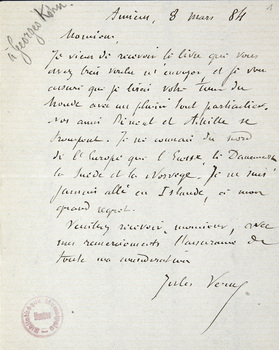 à Georges Kohn
Amiens, 8 mars 84
Monsieur,
Je viens de recevoir le livre que vous
avez bien voulu m'envoyer et je vous
assure que je lirai votre tour du
Monde avec un plaisir tout particulier.
Nos amis et se
trompent. Je ne connais du nord
de l'Europe que l'Ecosse, le Danemark
la Suède et la Norvège. Je ne suis
jamais allé en Islande, à mon
grand regret.
Veuillez recevoir, monsieur, avec
mes remerciements l'assurance de
toute ma considération
Jules Verne